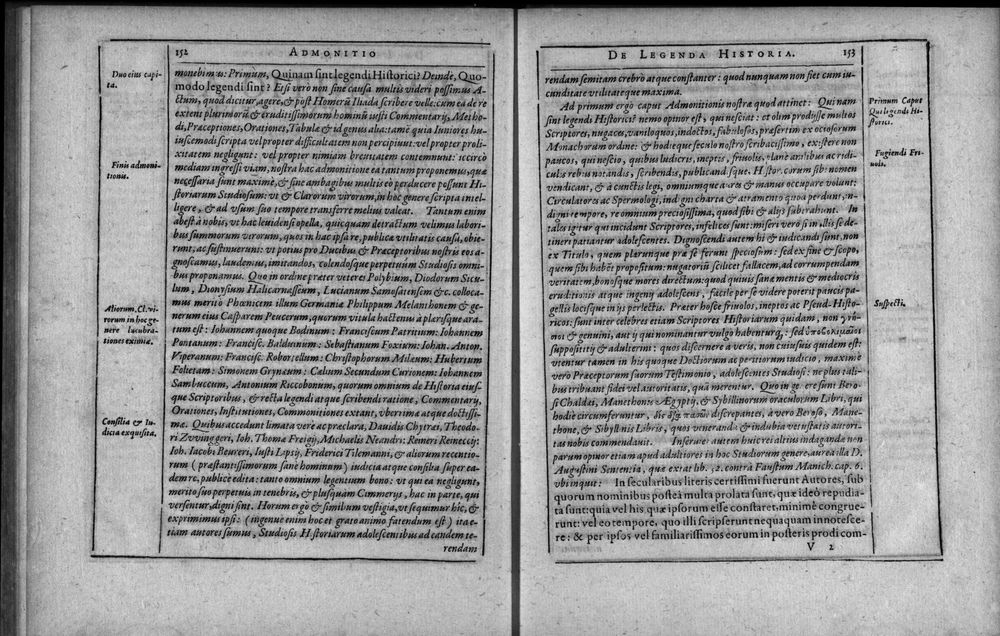 152 ADMONITIO
Duo eius capi-
ta.
monebimus: Primum, Quinam sint legendi Historici? Deinde, Quo-
modo legendi sint? Etsi vero non sine causâ multis videri possimus A-
ctum, quod dicitur, agere, & post Homerū Iliada scribere velle: cum ea de re
extent plurimorū & eruditissimorum hominū iusti Commentarij, Metho-
di, Præceptiones, Orationes, Tabulæ & id genus alia: tamē quia Iuniores hu-
iuscemodi scripta vel propter difficultatem non percipiunt: vel propter proli-
xitatem negligunt: vel propter nimiam breuitatem contemnunt: iccircò
Finis admoni-
tionis.
mediam ingressi viam, nostra hac admonitione ea tantum proponemus, quæ
necessaria sunt maximè, & sine ambagibus multis eò perducere possunt Hi-
storiarum Studiosum: vt & Clarorum virorum, in hoc genere scripta intel-
ligere, & ad vsum suo tempore transferre melius valeat. Tantum enim
abest à nobis, vt hac leuidensi opella, quicquam detractum velimus labori-
bus summorum virorum, quos in hac ipsa re, publicæ vtilitatis causa, obie-
runt, ac sustinuerunt: vt potius pro Ducibus & Præceptoribus nostris eos a-
gnoscamus, laudemus, imitandos, colendosque perpetuùm Studiosis omni-
bus proponamus. Quo in ordine præter veteres Polybium, Diodorum Sicu-
lum, Dionysium Halicarnaseum, Lucianum Samosatensem &c. colloca-
Aliorum, Cl. vi-
rorum in hoc ge-
nere lucubra-
tiones eximiæ.
mus meritò Phœnicem illum Germaniæ Philippum Melanthonem & ge-
nerum eius Casparem Peucerum, quorum vitula hactenus à plerisque ara-
tum est: Iohannem quoque Bodinum: Franciscum Patritium: Iohannem
Pontanum: Francisc. Balduinum: Sebastianum Foxium: Iohan. Anton.
Viperanum: Francisc: Robortellum: Christophorum Mileum: Hubertum
Folietam: Simonem Grynæum: Cælium Secundum Curionem: Iohannem
Sambuccum, Antonium Riccobonum, quorum omnium de Historia eius-
que Scriptoribus, & recta legendi atque scribendi ratione, Commentarij,
Orationes, Institutiones, Commonitiones extant, vberrimæ atque doctissi-
Consilia & Iu-
dicia exquisita.
mæ. Quibus accedunt limata vere ac præclara, Dauidis Chytræi, Theodo-
ri Zvvingeri, Ioh. Thomæ Freigij, Michaelis Neandri: Reineri Reineccij:
Ioh. Iacobi Beureri, Iusti Lapsij, Friderici Tilemanni, & aliorum recentio-
rum (præstantissimorum sanè hominum) iudicia atque consilia super ea-
dem re, publicè edita: tanto omnium legentium bono: vt qui ea negligunt,
meritò suo perpetuis in tenebris, & plusquam Cimmerijs, hac in parte, qui
versentur, digni sint. Horum ergò & similium vestigia, vt sequimur hic, &
exprimimus ipsi: (ingenuè enim hoc et grato animo fatendum est) ita e-
tiam autores sumus, Studiosis Historiarum adolescentibus ad eandem te-
rendam
DE LEGENDA HISTORIA. 153
rendam semitam crebrò atque constanter: quod nunquam non fiet cum iu-
cunditate vtilitateque maxima.
Primum Caput
Qui legendi Hi-
storici.
Ad primum ergò caput Admonitionis nostræ quod attinet: Quinam
sint legendi Historici? nemo opinor est, qui nesciat: et olim prodisse multos
Scriptores, nugaces, vaniloquos, indoctos, fabulosos, præsertim ex ociosorum
Monachorum ordine: & hodieque seculo nostro scribacissimo, existere non
Fugiendi Fri-
uoli.
paucos, qui nescio, quibus ludicris, ineptis, friuolis, planè anilibus ac ridi-
culis rebus notandis, scribendis, publicandisque. Historicorum sibi nomen
vendicant, & à cunctis legi, omniumque aures & manus occupare volunt:
Circulatores ac Spermologi, indigni charta & atramento quod perdunt, in-
digni tempore, re omnium preciosissima, quod sibi & alijs suberahunt. In
tales igitur qui incidunt Scriptores, infelices sunt: miseri verò si in illis se de-
tineri patiantur adolescentes. Dignoscendi autem hi & iudicandi sunt, non
ex Titulo, quem plærunque præ se ferunt speciosum: sed ex fine & scopo,
quem sibi habēt propositum: nugatoriū scilicet fallacem, ad corrumpendam
veritatem, bonosque mores directum: quod quiuis sanæ mentis & mediocris
eruditionis atque ingenij adolescens, facilè per se videre poterit paucis pa-
Suspecti.
gellis locisque in ijs perlectis. Præter hosce friuolos, ineptos ac Pseud-Histo-
ricos: sunt inter celebres etiam Scriptores Historiarum quidam, non γνή-
σιοι & genuini, aut ij qui nominantur vulgò habenturq;: sed ὑποβολιμαῖοι
supposititij & adulterini: quos discernere à veris, non cuiusuis quidem est:
vtentur tamen in his quoque Doctiorum ac peritiorum iudicio, maximè
verò Præceptorum suorum Testimonio, adolescentes Studiosi: ne plus tali-
bus tribuant fidei vel autoritatis, quā merentur. Quo in genere sunt Bero-
si Chaldæi, Manethonis Ægyptij, & Sybillinorum oraculorum Libri, qui
hodiè circumferuntur, δὶς διὰ πασῶν discrepantes, à vero Beroso, Mane-
thone, & Sibyllinis Libris, quos veneranda & indubia vetustatis autori-
tas nobis commendauit. Inseruiet autem huic rei altius indagandæ non
parum opinor etiam apud adultiores in hoc Studiorum genere, aurea illa D.
Augustini Sententia, quæ extat lib. 32. contrà Faustum Manich. cap. 6.
vbi inquit: In secularibus literis certissimi fuerunt Autores, sub
quorum nominibus posteà multa prolata sunt, quæ ideò repudia-
ta sunt: quia vel his, quæ ipsorum esse constaret, minimè congrue-
runt: vel eo tempore, quo illi scripserunt nequaquam innotesce-
re: & per ipsos vel familiarissimos eorum in posteris prodi com-
V 2